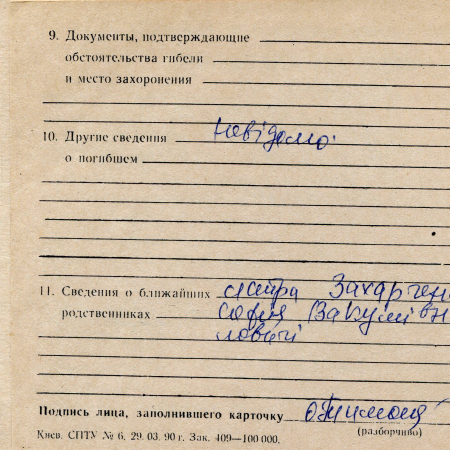 9. Документы, подтверждающие
обстоятельства гибели
и место захоронения
10. Другие сведения невідомо
о погибшем
11. Сведения о ближайших сестра Захарчен
родственниках Софія Вакулі
Подпись лица, заполнившего карточку
(разборчиво)
Киев. СПТУ № 6. 29. 03. 90 г. Зак. 409—100 000.